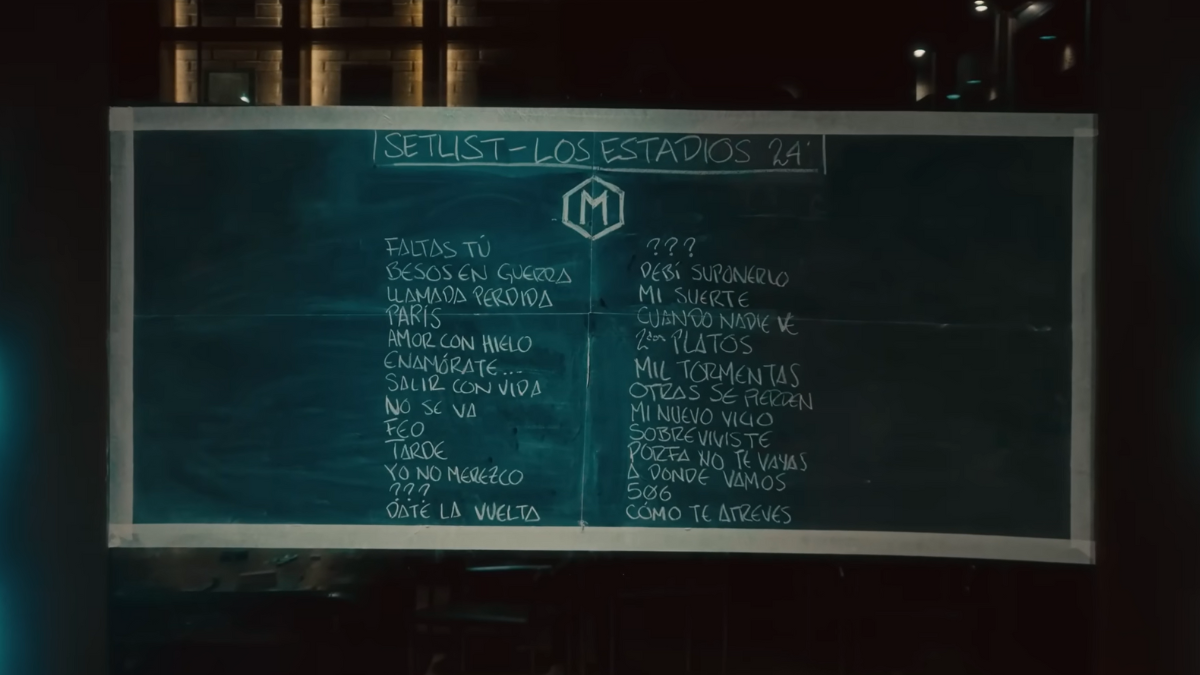 SETLIST-LOS ESTADIOS 24'
M
FALTAS TÚ
BESOS EN GUERRA
LLAMADA PERDIDA
PARÍS
AMOR CON HIELO
ENAMÓRATE...
SALIR CON VIDA
NO SE VA
FEO
TARDE
YO NO MEREZCO
???
DATE LA VUELTA
???
DEBÍ SUPONERLO
MI SUERTE
CUANDO NADIE VE
2dos PLATOS
MIL TORMENTAS
OTRAS SE PIERDEN
MI NUEVO VICIO
SOBREVIVISTE
PORFA NO TE VAYAS
A DONDE VAMOS
506
CÓMO TE ATREVES